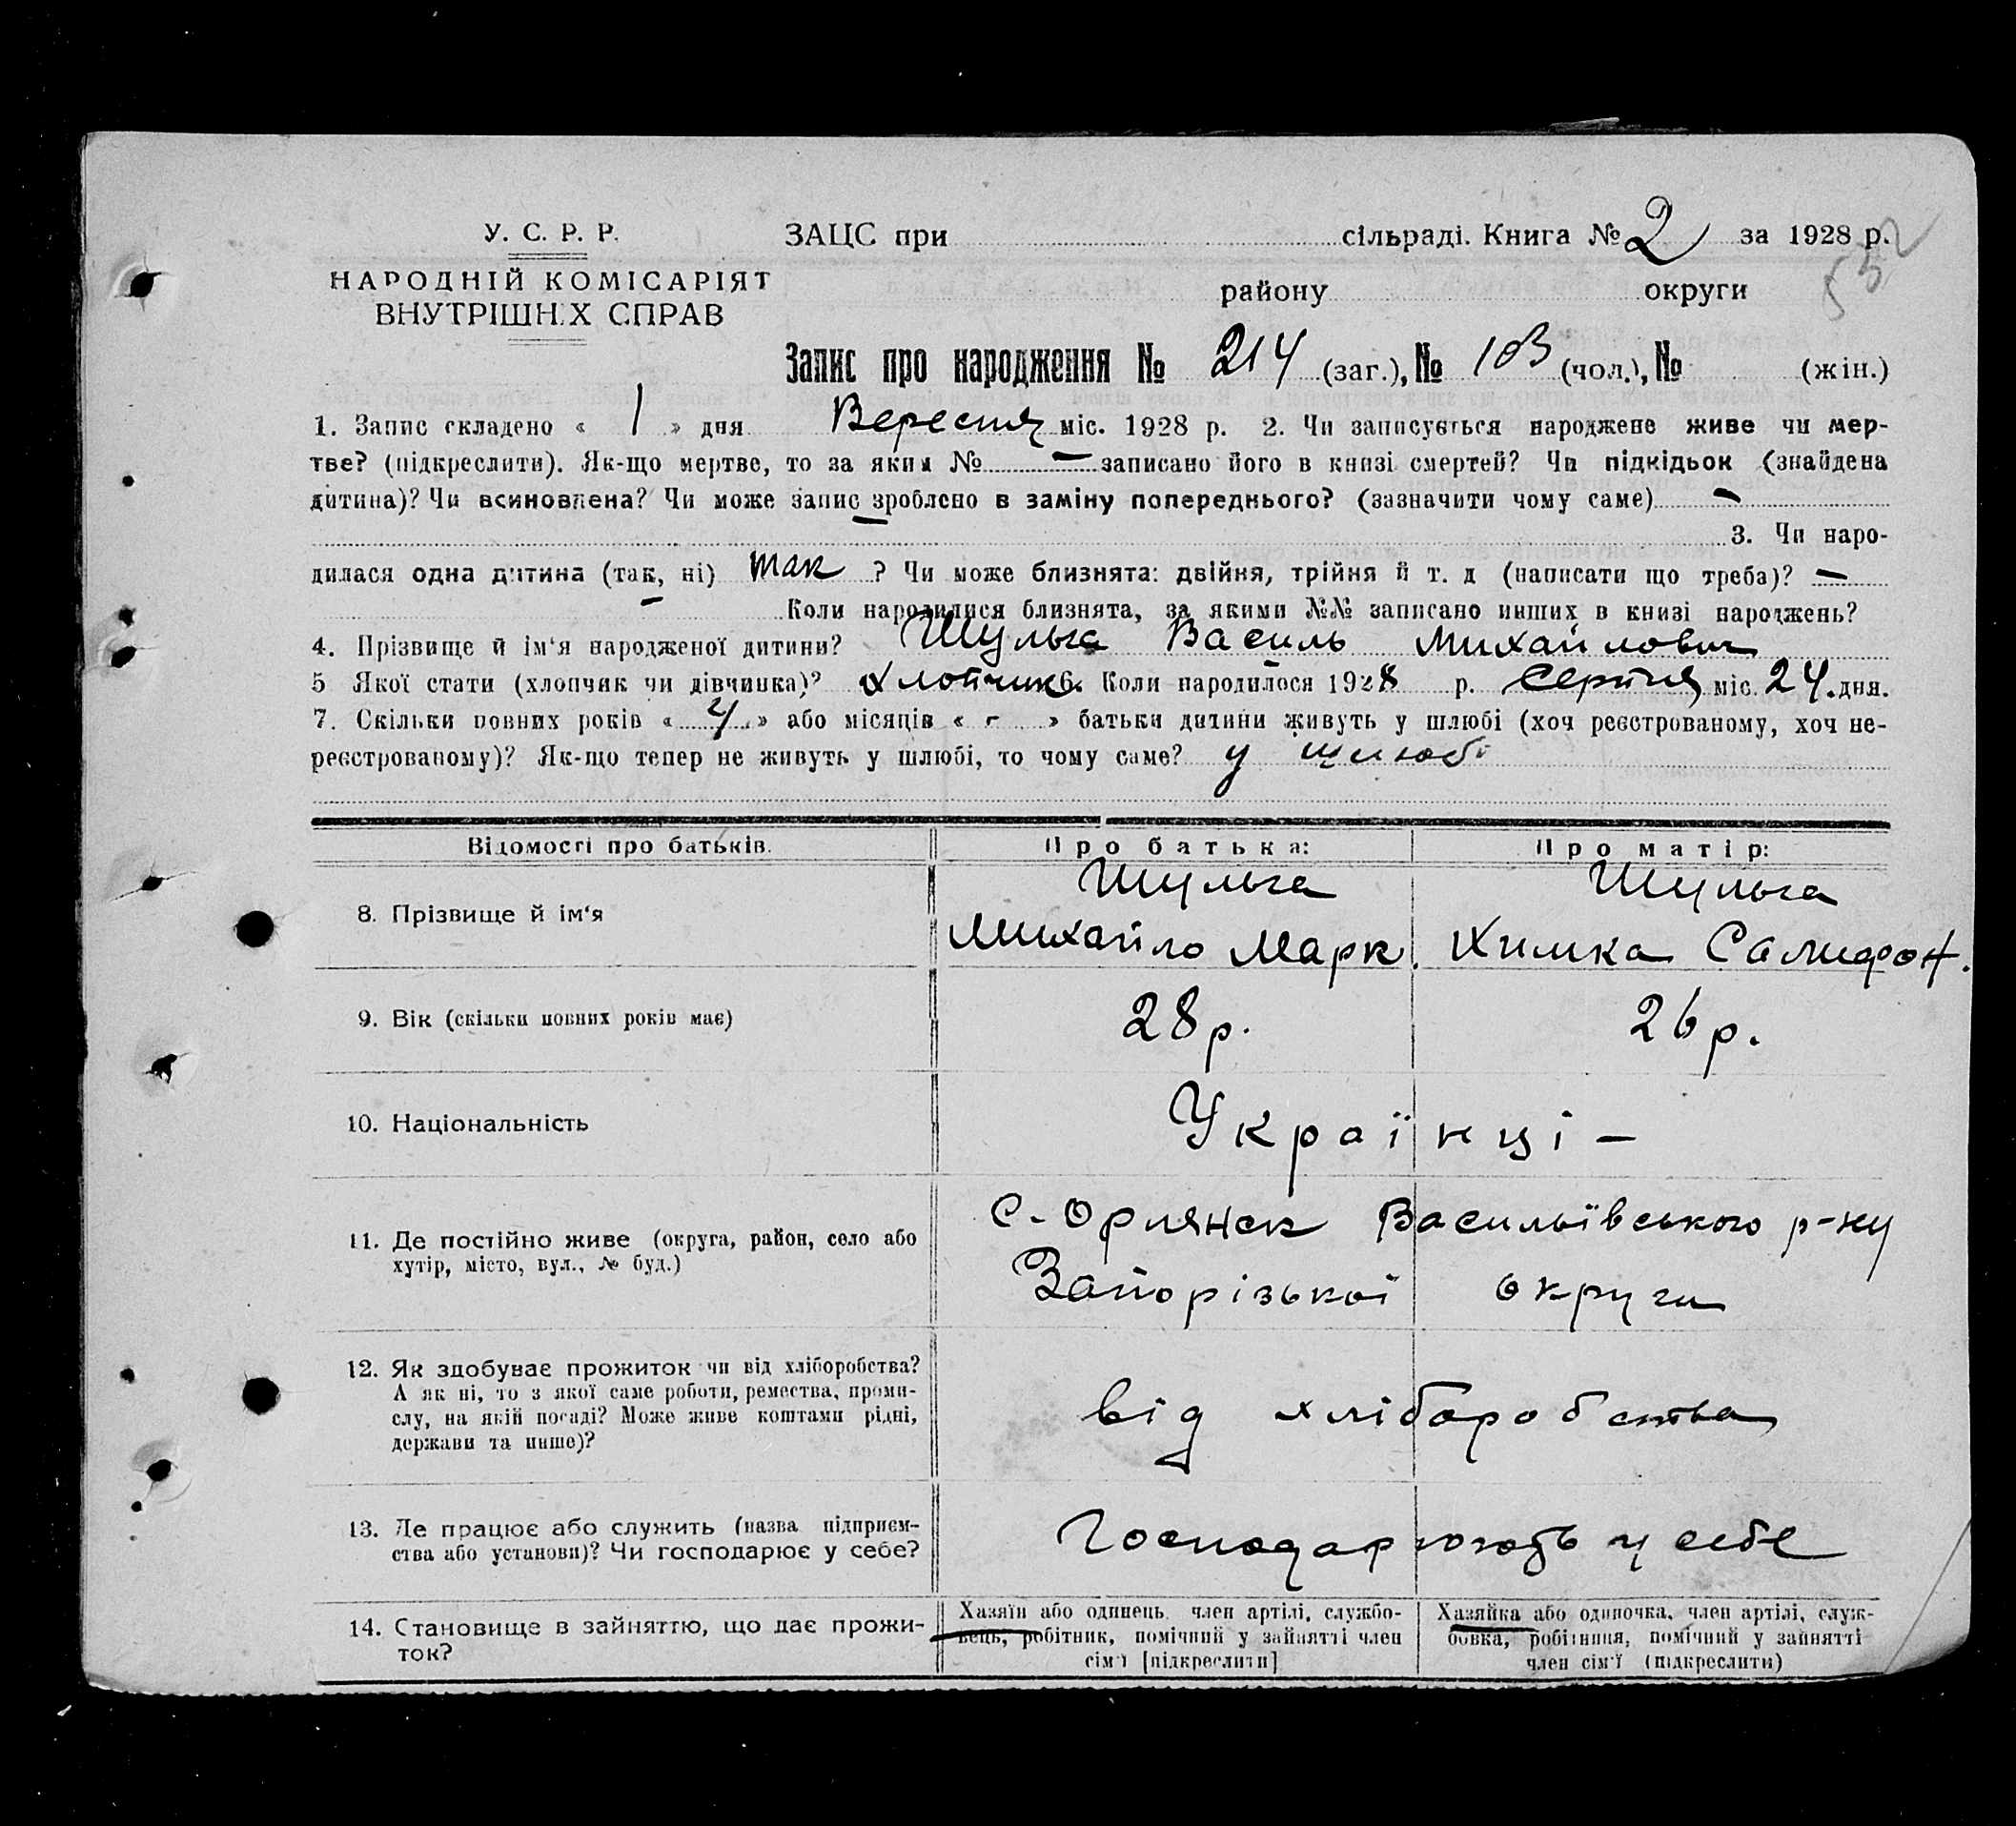 У. С. Р. Р.
НАРОДНІЙ КОМІСАРІЯТ
ВНУТРІШНІХ СПРАВ
ЗАЦС при сільраді. Книга № 2 за 1928 р.
району округи
Запис про народження № 214 (заг.), № 103 (чол.), № (жін.)
1. Запис складено « 1 » дня Вересня міс. 1928 р. 2. Чи записується народжене живе чи мер-
тве? (підкреслити). Як-що мертве, то за яким № — записано його в книзі смертей? Чи підкідьок (знайдена
дитина)? Чи всиновлена? Чи може запис зроблено в заміну попереднього? (зазначити чому саме) —
— 3. Чи наро-
дилася одна дитина (так, ні) так ? Чи може близнята: двійня, трійня й т. д (написати що треба)? —
— Коли народилися близнята, за якими №№ записано инших в книзі народжень?
4. Прізвище й ім‘я народженої дитини? Шульга Василь Михайлович
5 Якої стати (хлопчик чи дівчинка)? Хлопчик 6. Коли народилося 1928 р. Серпня міс. 24. дня.
7. Скільки повних років « 4 » або місяців « - » батьки дитини живуть у шлюбі (хоч реєстрованому, хоч не-
реєстрованому)? Як-що тепер не живуть у шлюбі, то чому саме? у шлюбі
Відомості про батьків. Про батька: Про матір:
8. Прізвище й ім‘я
Шульга Михайло Марк.
Шульга Химка Салифон.
9. Вік (скільки повних років має) 28 р. 26 р.
10. Національність Українці –
11. Де постійно живе (округа, район, село або
хутір, місто, вул., № буд.)
с. Орлянск Васильївського р-ну
Запорізької округи
12. Як здобуває прожиток чи від хліборобства?
А як ні, то з якої саме роботи, ремества, проми-
слу, на якій посаді? Може живе коштами рідні,
держави та инше)?
від хліборобства
13. Де працює або служить (назва підприєм-
ства або установи)? Чи господарює у себе?
Господарюють у себе
14. Становище в зайняттю, що дає прожи-
ток?
Хазяїн або одинець, член артілі, службо-
вець, робітник, помічний у зайнятті член
сім‘ї [підкреслити]
Хазяйка або одиночка, член артілі, служ-
бовка, робітниця, помічний у зайнятті
член сім‘ї (підкреслити)